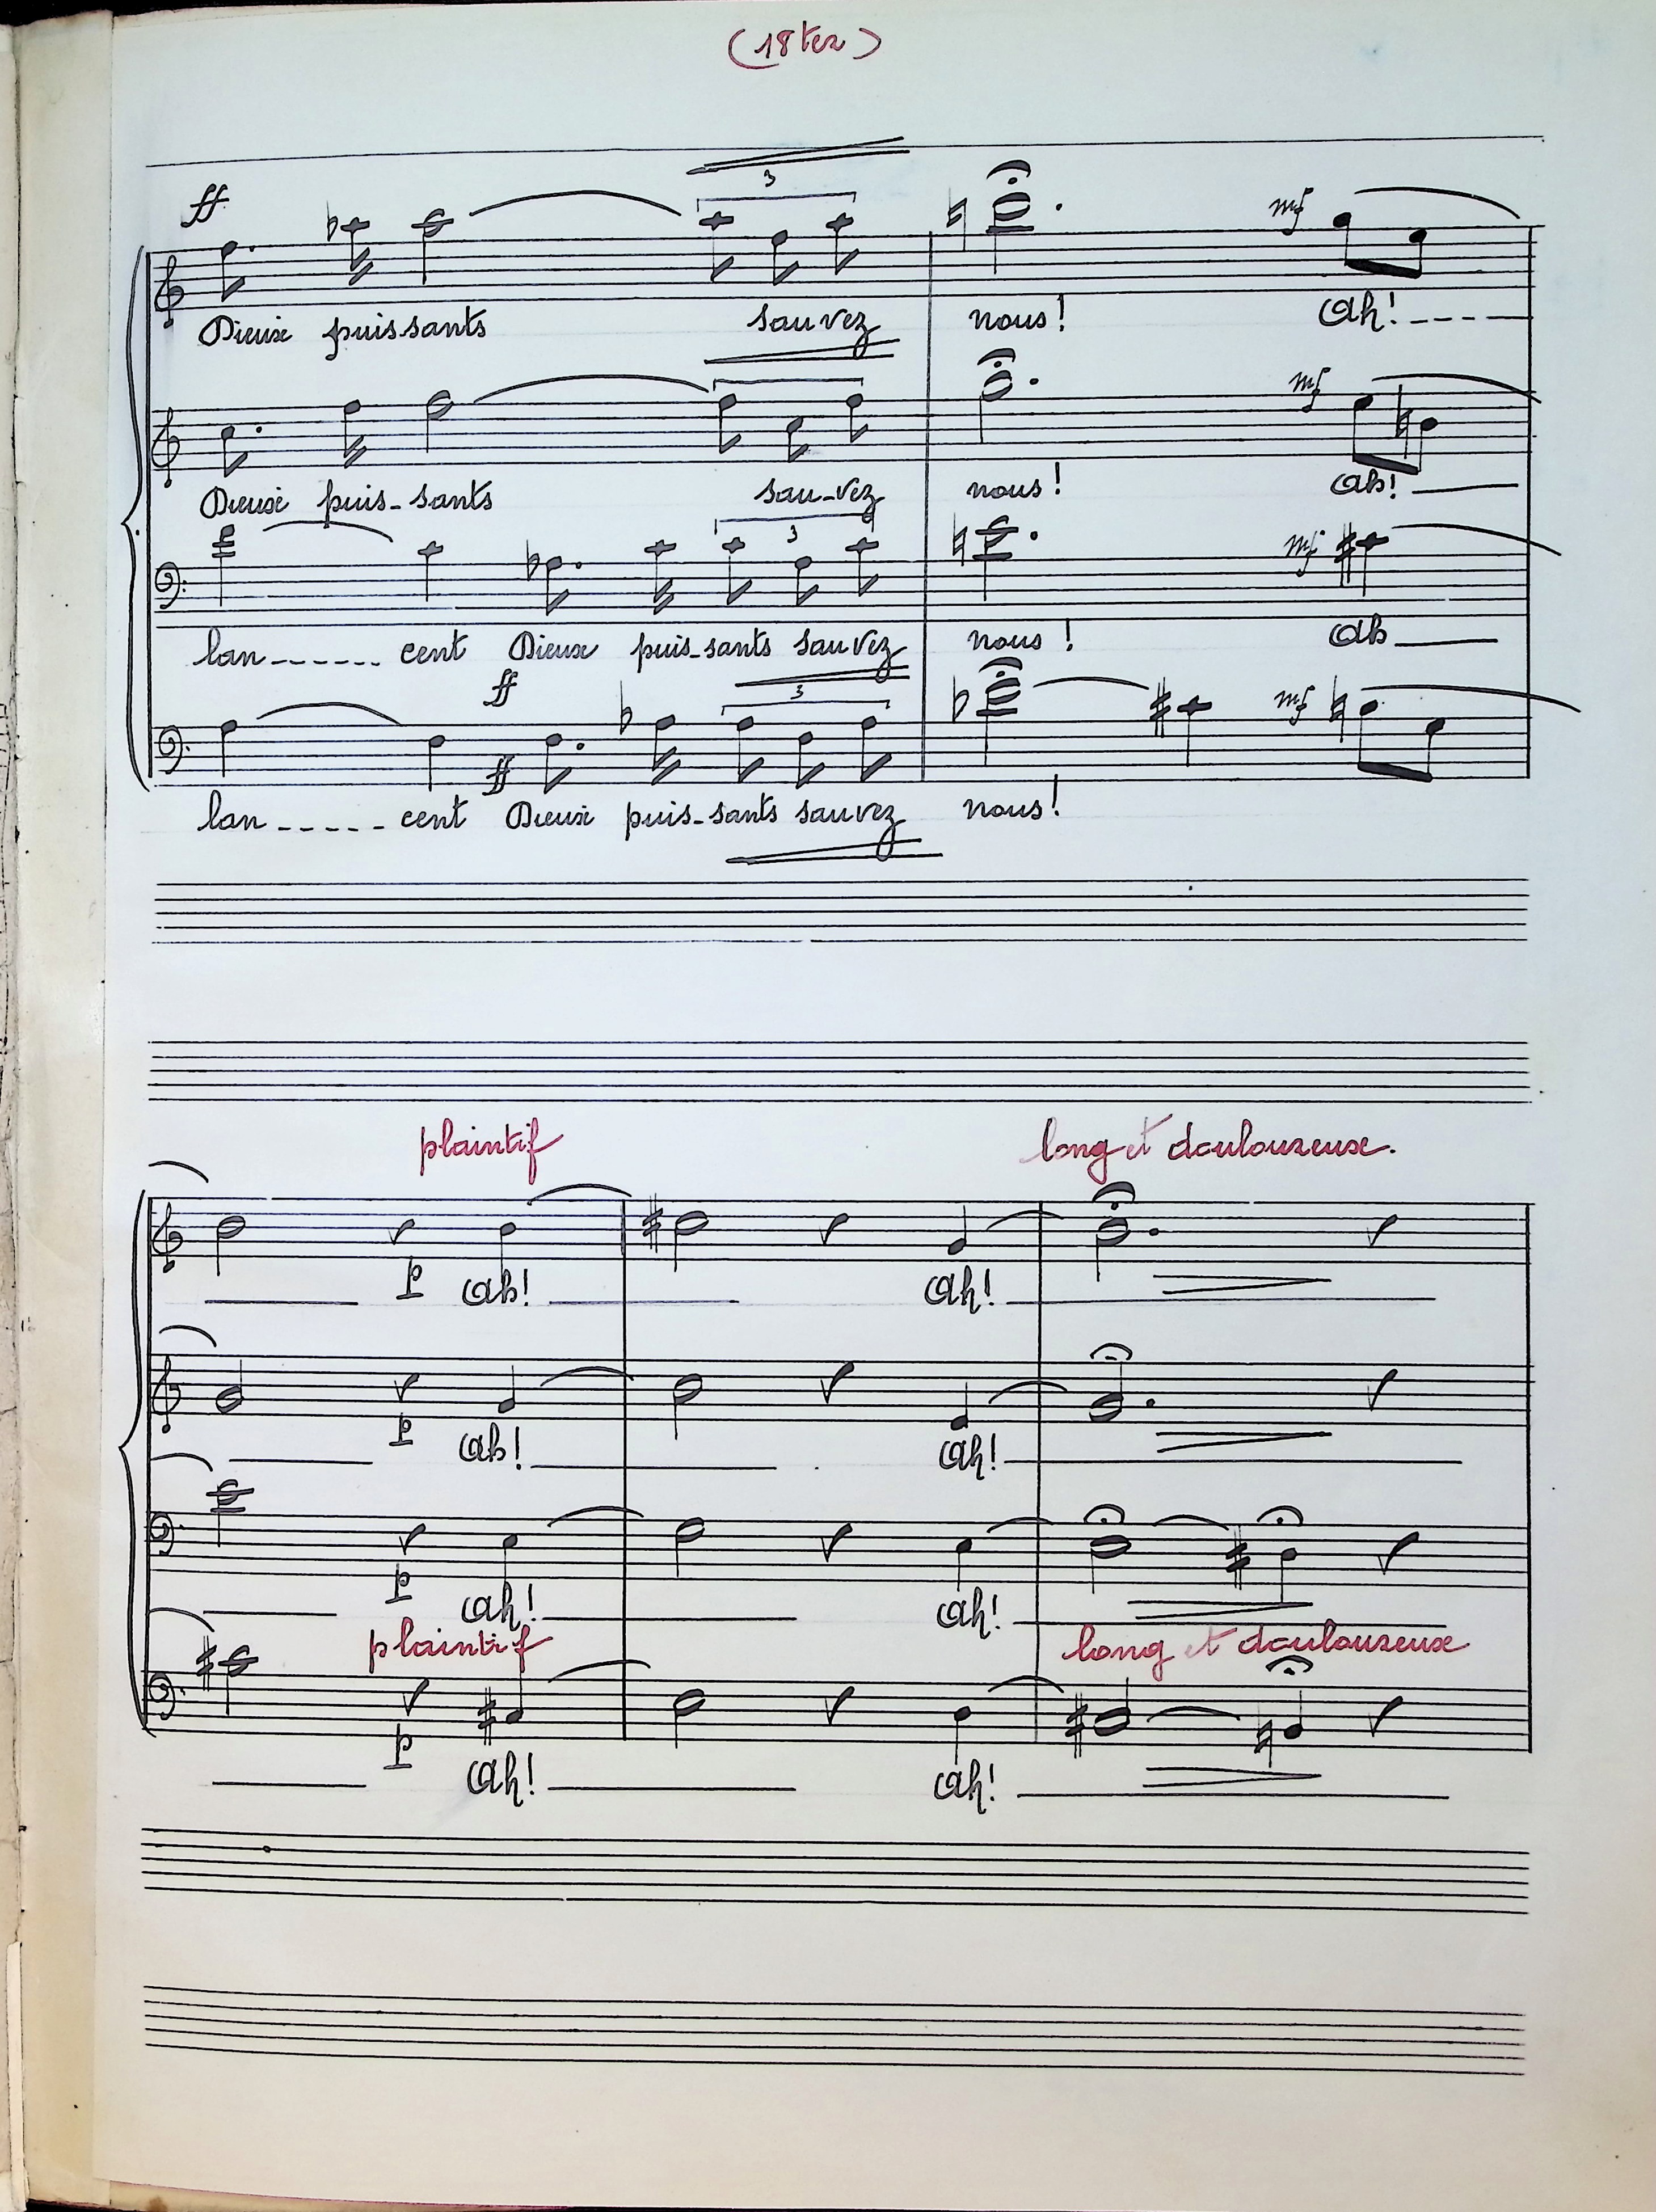 (18 ter)
ff
3
mf
Dieux puissants sauvez nous! Ah!----
mf
Dieux puis-sants sau-vez nous! ah!
3
mf
lan------ cent Dieux puis-sants sauvez nous! ah
ff
3
mf
ff
lan----- cent Dieux puis-sants sauvez nous!
plaintif long et douloureuse.
p ah! ah!
p ah! ah!
p ah! ah!
plaintif long et douloureux
p ah! ah!